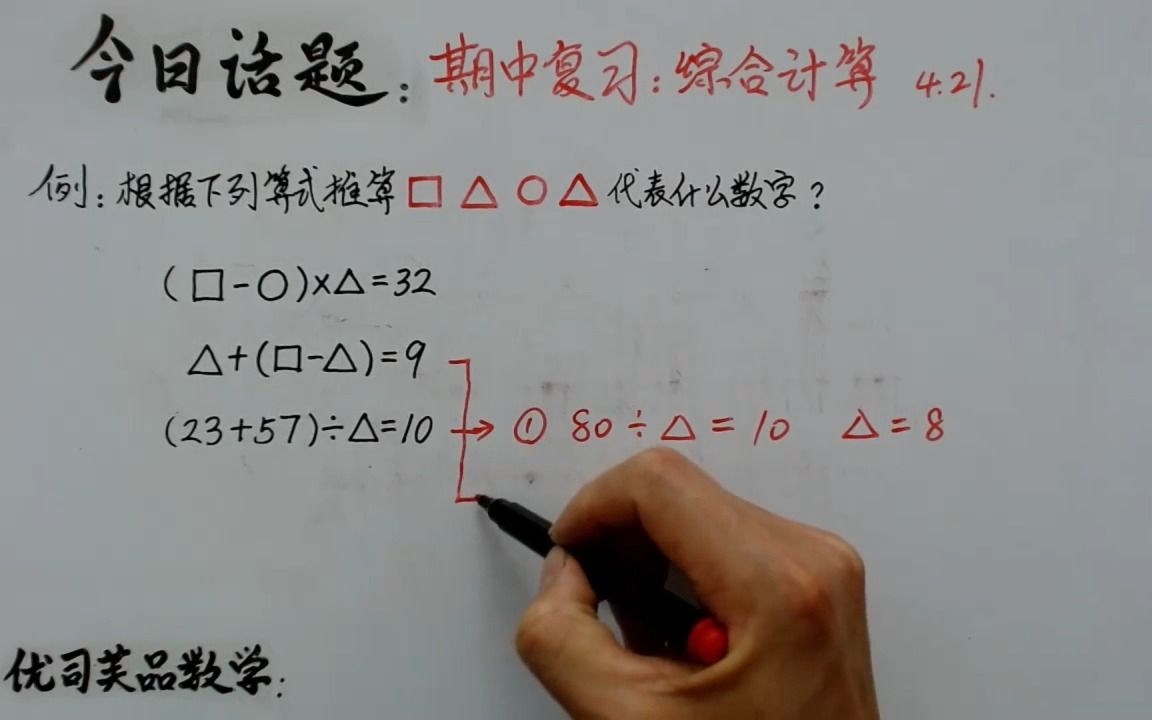 今日话题：期中复习：综合计算 4.21.
例：根据下列算式推算□△○△代表什么数字？
(□-○)×△=32
△+(□-△)=9
(23+57)÷△=10 → ① 80÷△=10 △=8
优司芙品数学：